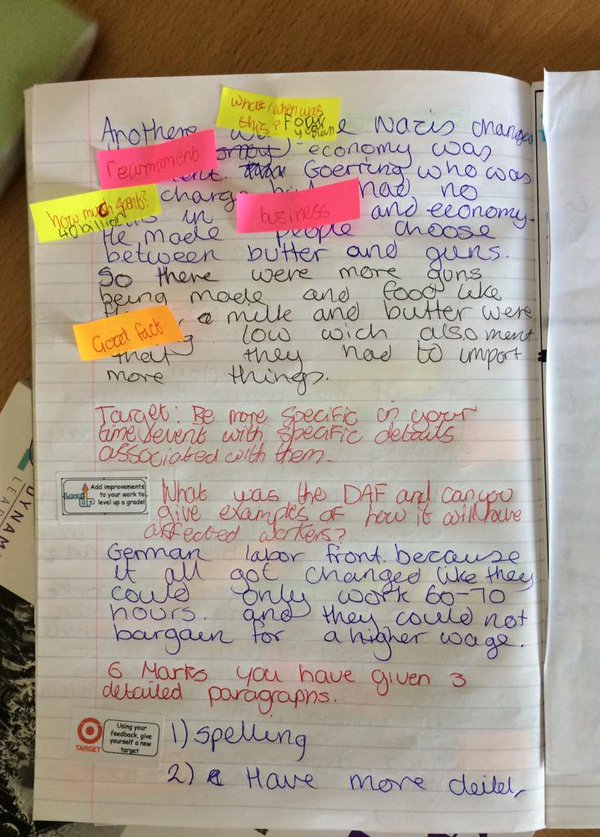 what/when was
this? Four
year plan
Anothere Nazis change
rearmament economy was
Goerring who was
how much spent?
40 billion
charge had no
business
in and economy.
He made people choose
between butter and guns.
So there were more guns
being made and food like
milk and butter were
Good fact
low wich also ment
that they had to import
more things.
Target: Be more specific on your
time/event with specific details
associated with them.
Level UP
Add improvements
to your work to
level up a grade!
What was the DAF and can you
give examples of how it will have
affected workers?
German labor front. because
it all got changed like they
could only work 60-70
hours. and they could not
bargain for a higher wage.
6 Marks you have given 3
detailed paragraphs.
TARGET
Using your
feedback, give
yourself a new
target
1) spelling
2) Have more deitel,
DYNAM
LEA